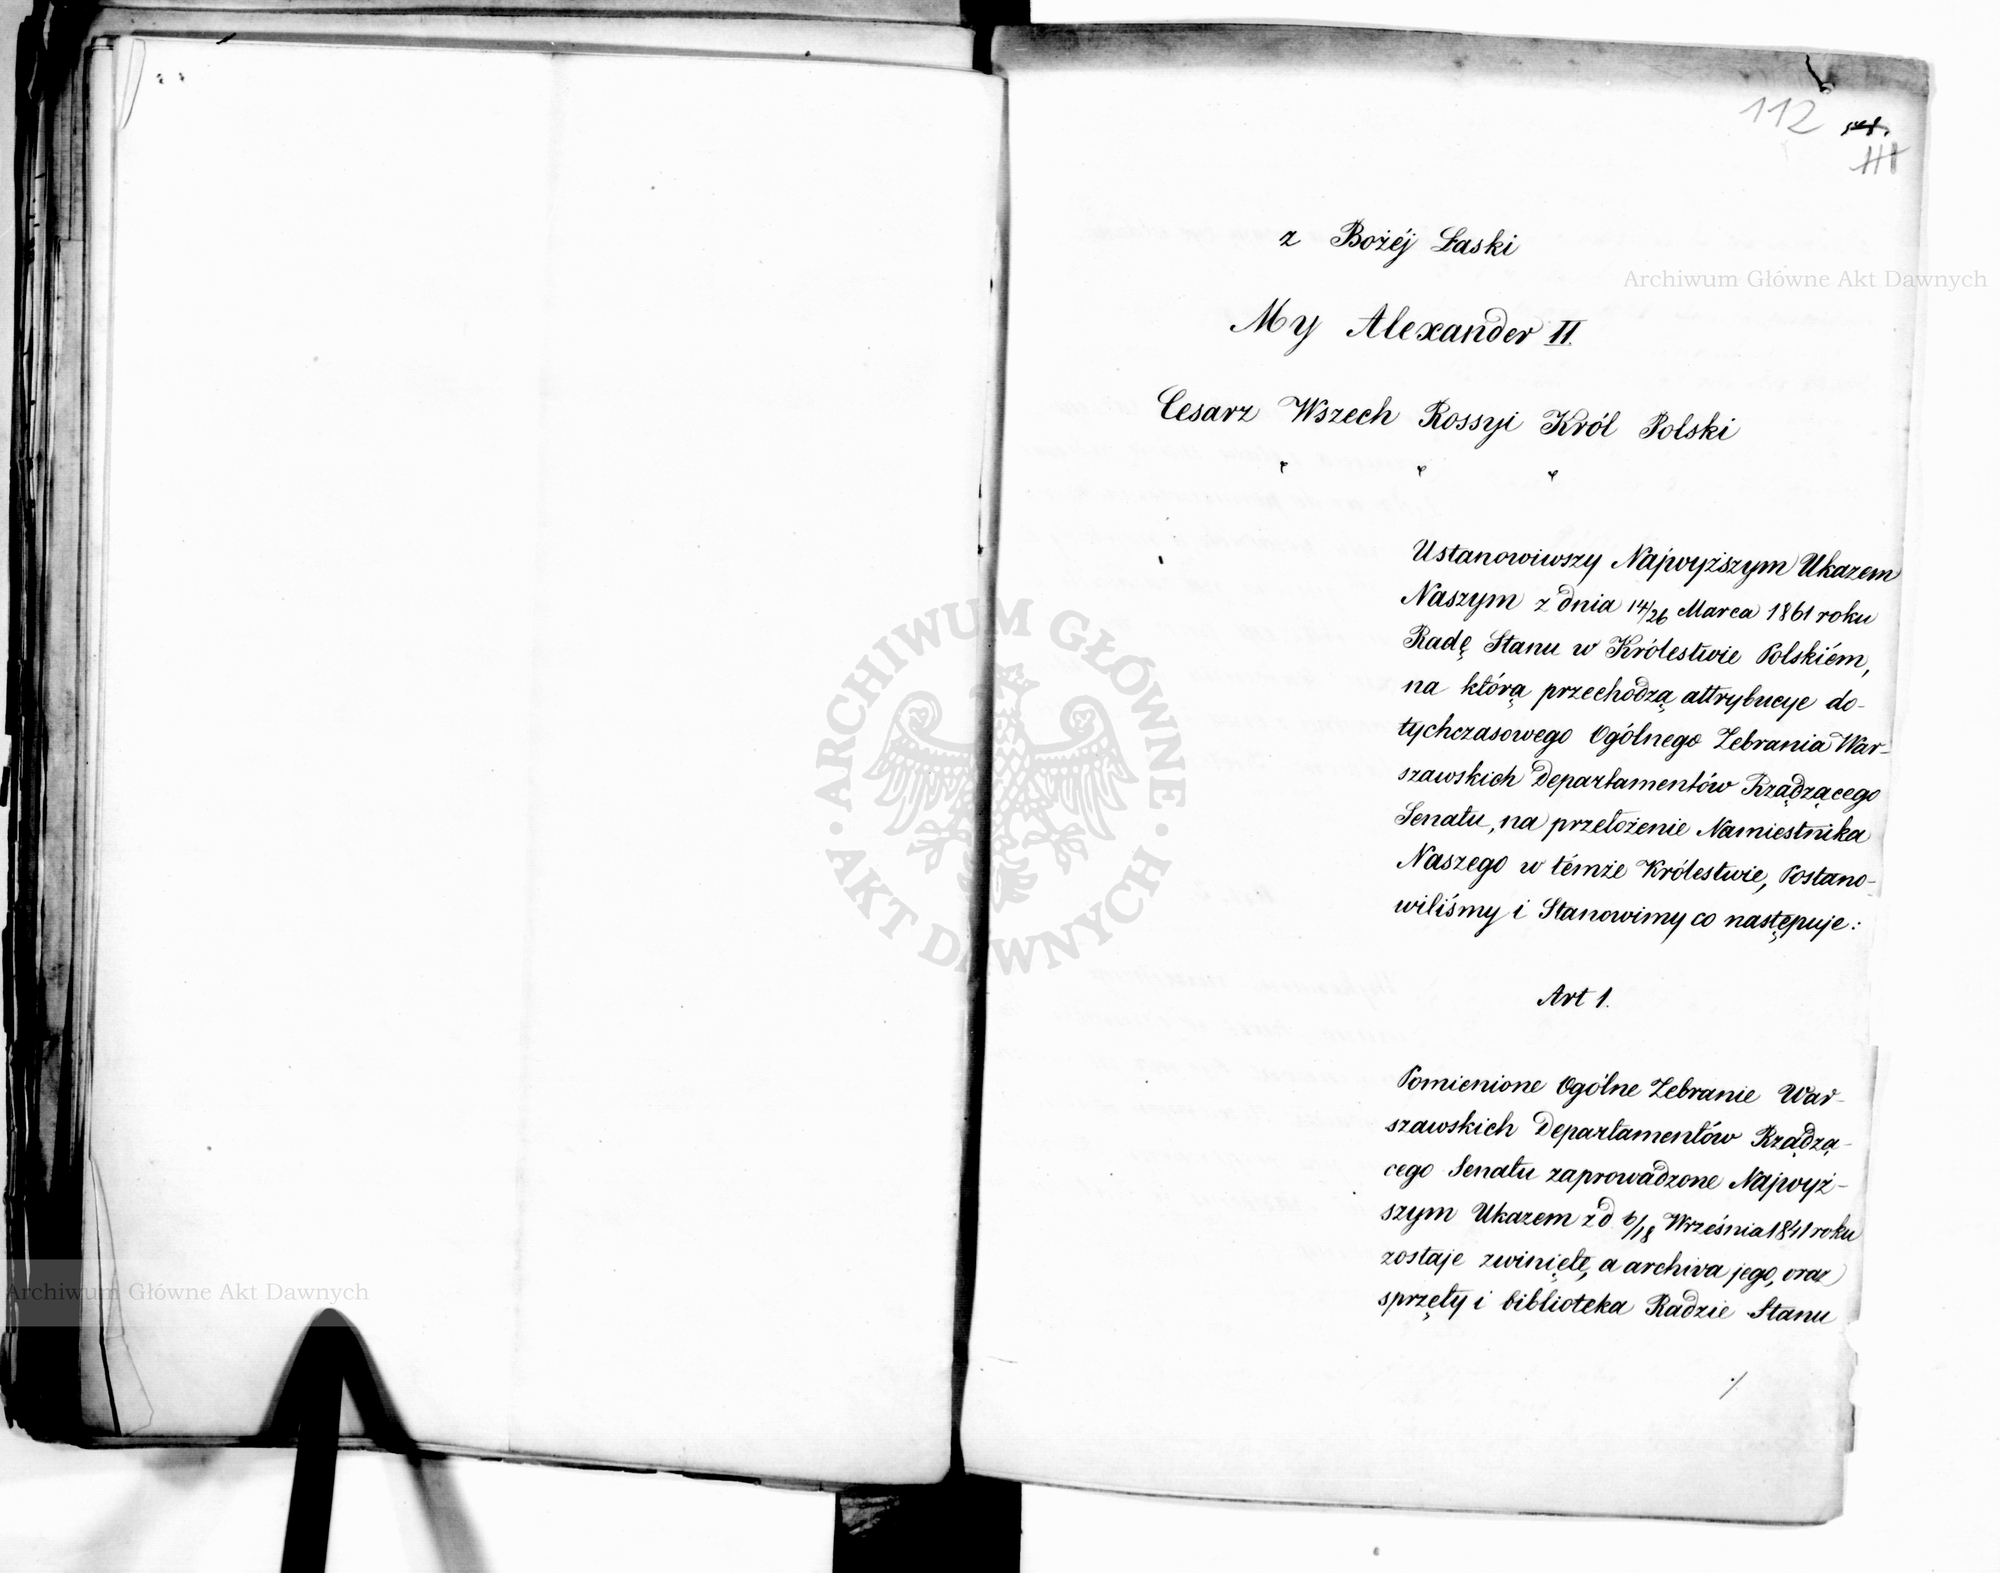 112
111
z Bożéj Łaski
Archiwum Główne Akt Dawnych
My Alexander II.
Cesarz Wszech Rossyi Król Polski
Ustanowiwszy Najwyższym Ukazem
Naszym z dnia 14/26 Marca 1861 roku
Radę Stanu w Królestwie Polskiém,
na którą przechodzą attrybucye do-
tychczasowego Ogólnego Zebrania War-
szawskich Departamentów Rządzącego
Senatu, na przełożenie Namiestnika
Naszego w témże Królestwie, Postano-
wiliśmy i Stanowimy co następuje:
ARCHIWUM GŁÓWNE
AKT DAWNYCH
Art 1.
Pomienione Ogólne Zebranie War-
szawskich Departamentów Rządzą-
cego Senatu zaprowadzone Najwyż-
szym Ukazem z d. 6/18 Września 1841 roku
zostaje zwinięte, a archiva jego, oraz
sprzęty i biblioteka Radzie Stanu
Archiwum Główne Akt Dawnych
./.